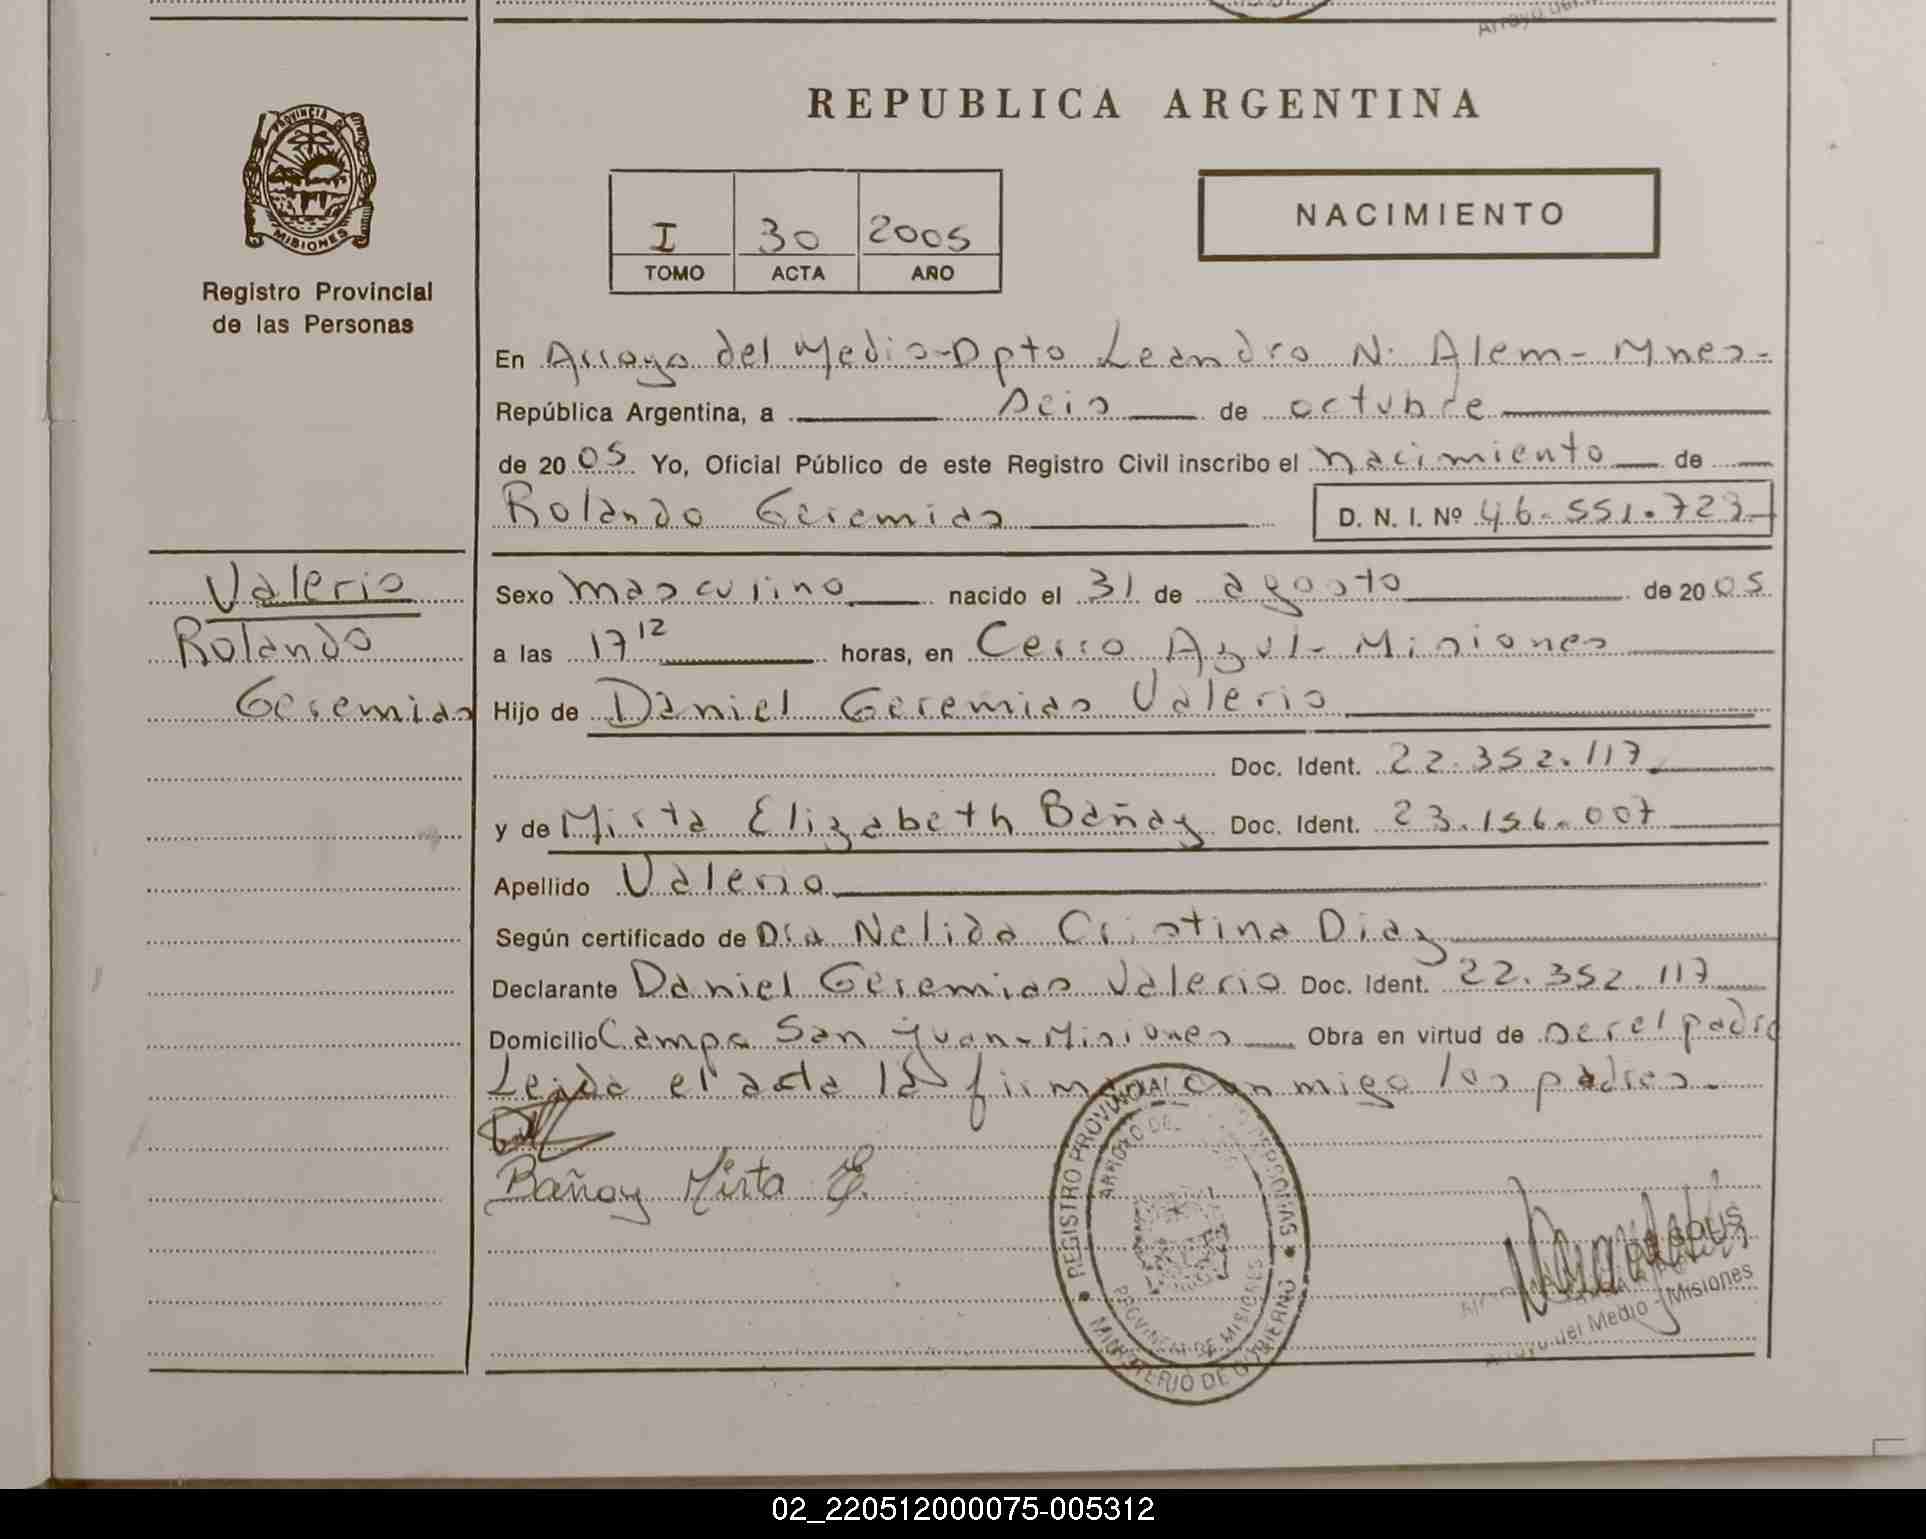 REPUBLICA ARGENTINA
PROVINCIA DE
MISIONES
Registro Provincial
de las Personas
I 30 2005
TOMO ACTA AÑO
NACIMIENTO
En Arroyo del Medio - Dpto Leandro N. Alem - Mnes -
República Argentina, a seis de octubre
de 2005 Yo, Oficial Público de este Registro Civil inscribo el nacimiento de
Rolando Geremias D. N. I. Nº 46.551.723
Valerio
Rolando
Geremias
Sexo masculino nacido el 31 de agosto de 2005
a las 17 12 horas, en Cerro Azul - Misiones
Hijo de Daniel Geremias Valerio
Doc. Ident. 22.352.117
y de Mirta Elizabeth Bañay Doc. Ident. 23.156.007
Apellido Valerio
Según certificado de Dra Nelida Cristina Diaz
Declarante Daniel Geremias Valerio Doc. Ident. 22.352.117
Domicilio Campo San Juan - Misiones Obra en virtud de ser el padre
Leida el acta la firman conmigo los padres.
Bañay Mirta E.
REGISTRO PROVINCIAL PERSONAS
ARROYO DEL
PROVINCIA DE MISIONES
MINISTERIO DE GOBIERNO
Arroyo del Medio - Misiones
02_220512000075-005312